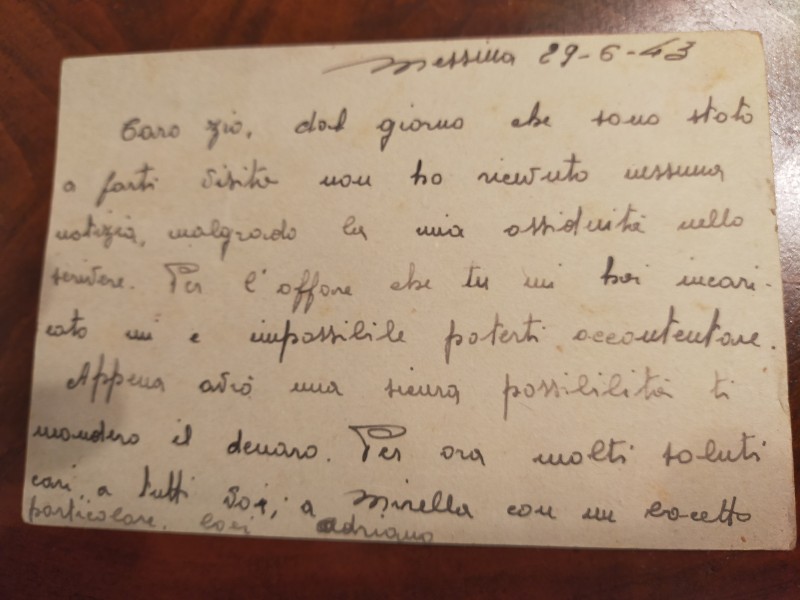 Messina 29-6-43
Caro zio, dal giorno che sono stato
a farti visita non ho ricevuto nessuna
notizia, malgrado la mia assiduità nello
scrivere. Per l'affare che tu mi hai incari-
cato mi è impossibile poterti accontentare.
Appena avrò una sicura possibilità ti
manderò il denaro. Per ora molti saluti
cari a tutti voi, a Mirella con un bacetto
particolare. Adriano